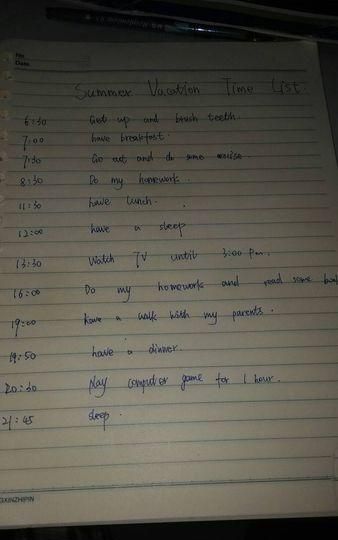 No.
Date.
Summer Vacation Time List.
6:30 Get up and brush teeth.
7:00 have breakfast.
7:30 Go out and do some exercise.
8:30 Do my homework.
11:30 have lunch.
12:00 have a sleep
13:30 Watch TV until 3:00 pm.
16:00 Do my homework and read some
19:00 have a walk with my parents.
19:50 have a dinner.
20:30 play computer game for 1 hour.
21:45 sleep.
GXINZHIPIN